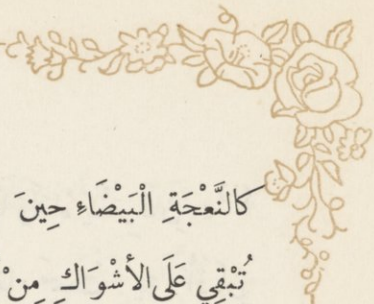 كالنَّعْجَةِ الْبَيْضَاءِ حِينَ
تُنْقِي عَلَى الأشْوَاكِ مِنْ